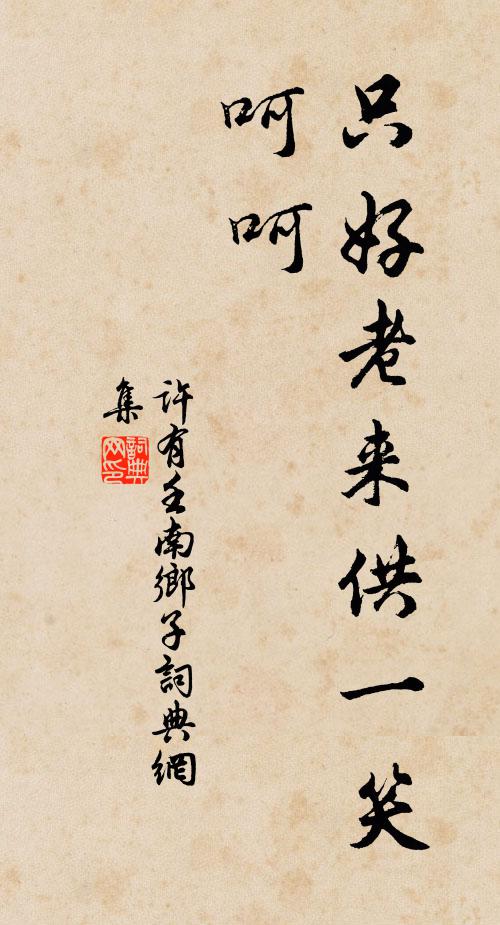 只好老来供一笑
呵呵
許有壬南鄉子詞典網
集
詞典
网印